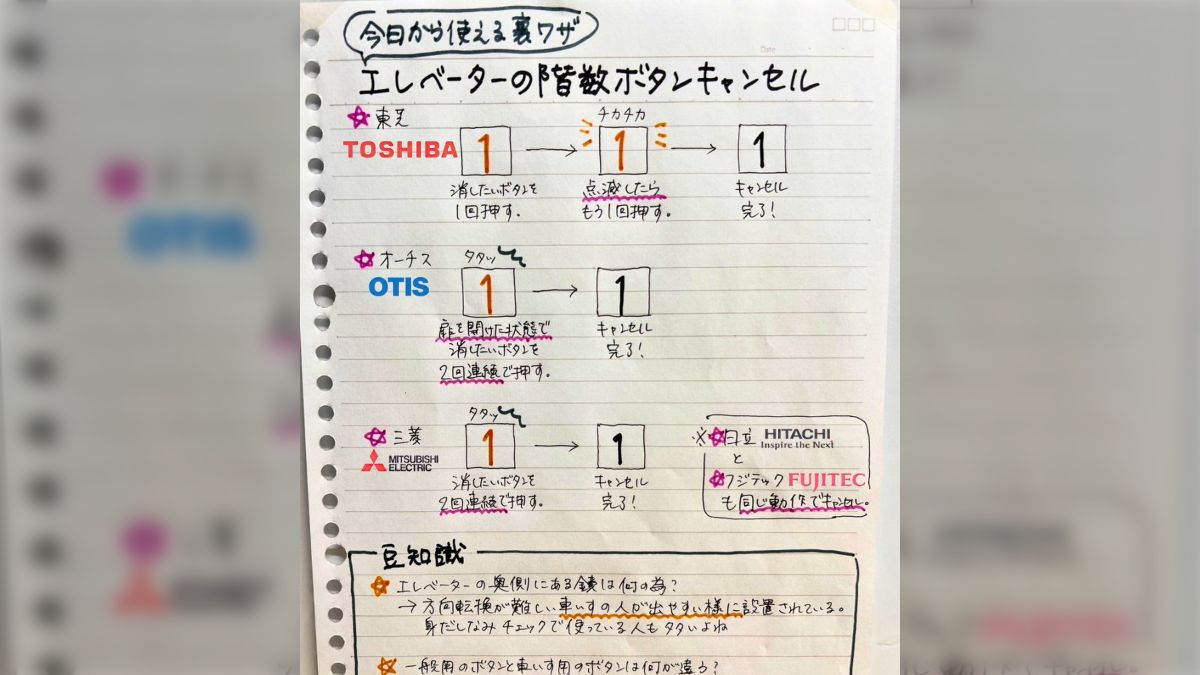 今日から使える裏ワザ
Date
エレベーターの階数ボタンキャンセル
東芝
TOSHIBA
1
チカチカ
1
1
消したいボタンを
1回押す。
点滅したら
もう1回押す。
キャンセル
完了!
オーチス
OTIS
タタッ
1
1
扉を開けた状態で
消したいボタンを
2回連続で押す。
キャンセル
完了!
三菱
MITSUBISHI
ELECTRIC
タタッ
1
1
消したいボタンを
2回連続で押す。
キャンセル
完了!
※日立 HITACHI
Inspire the Next
と
フジテック FUJITEC
も同じ動作でキャンセル。
豆知識
エレベーターの奥側にある鏡は何の為?
→方向転換が難しい車いすの人が出やすい様に設置されている。
身だしなみチェックで使っている人も多いよね
一般用のボタンと車いす用のボタンは何が違う?